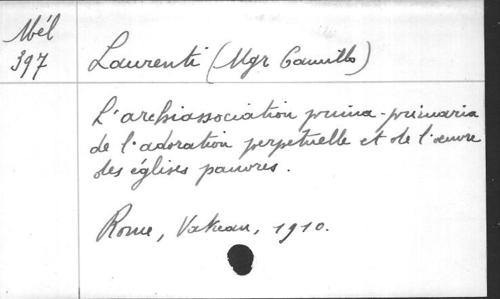 Mél
397
Laurenti (Mgr Camillo)
L'archiassociation prima-primaria
de l'adoration perpetuelle et de l'œuvre
des églises pauvres.
Rome, Vatican, 1910.